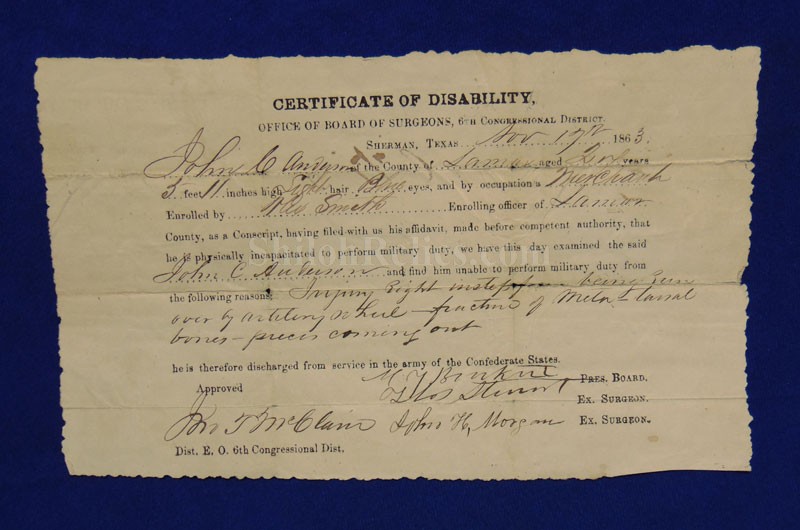 CERTIFICATE OF DISABILITY,
OFFICE OF BOARD OF SURGEONS, 6TH CONGRESSIONAL DISTRICT.
SHERMAN, TEXAS Nov 17th 1863.
John C Anderson of the County of Lamar aged years
5 feet 11 inches high Light hair Blue eyes, and by occupation a Merchant
Enrolled by Smith Enrolling officer of Lamar
County, as a Conscript, having filed with us his affidavit, made before competent authority, that
he is physically incapacitated to perform military duty, we have this day examined the said
John C Anderson and find him unable to perform military duty from
the following reasons: Injury Right instep from being run
over by artillery wheel - fracture of Meta tarsal
bones - pieces coming out
he is therefore discharged from service in the army of the Confederate States.
Approved PRES. BOARD.
EX. SURGEON.
Jno T McClain John H. Morgan EX. SURGEON.
Dist. E. O. 6th Congressional Dist.